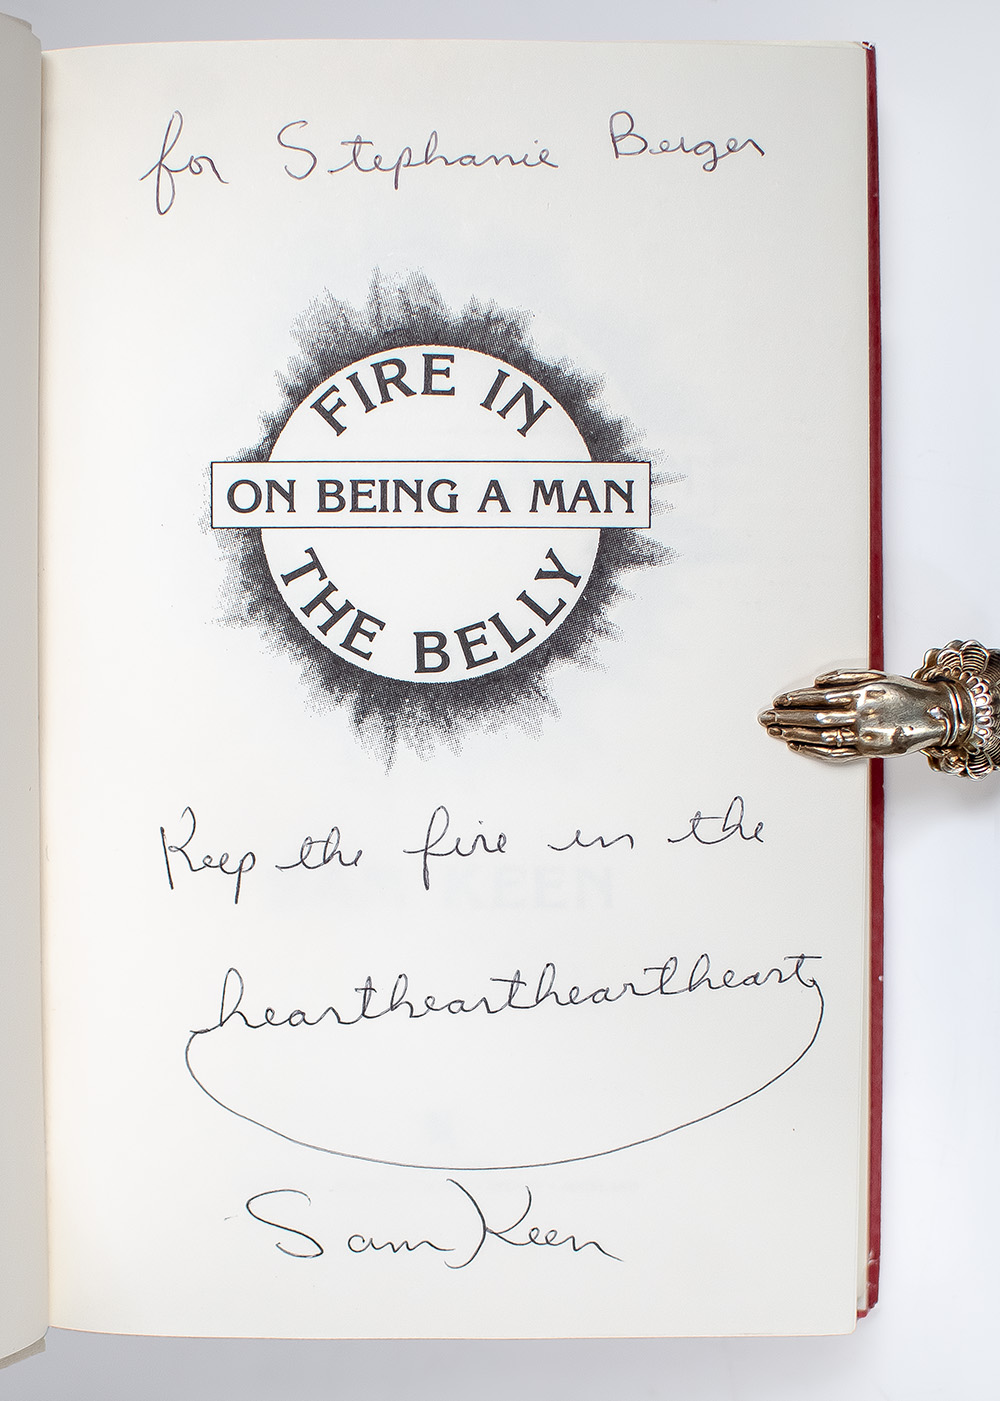 for Stephanie Berger
FIRE IN
ON BEING A MAN
THE BELLY
Keep the fire in the
heartheartheartheart
Sam Keen